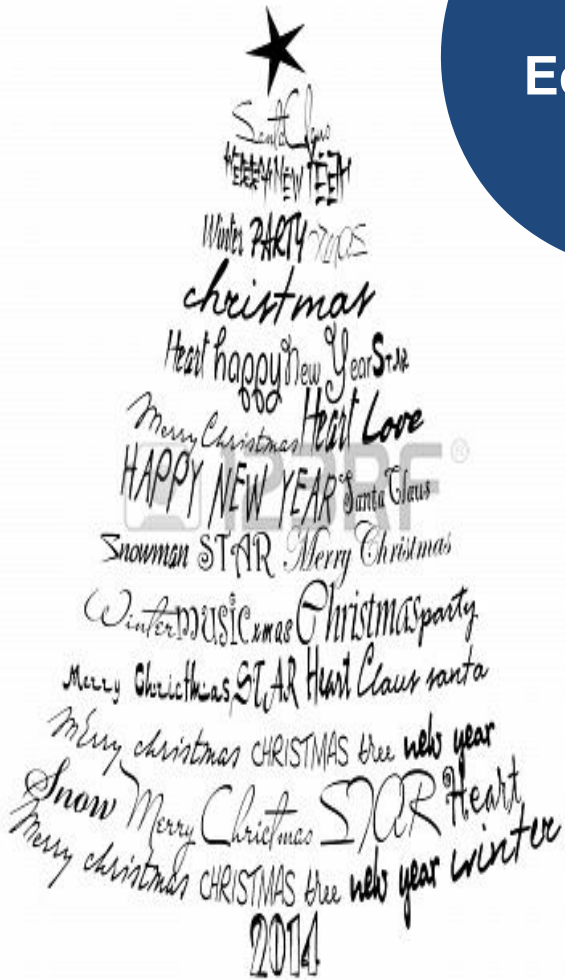 Ec
Santa Claus
NEW
Winter PARTY
christmas
Heart happy New Year STAR
Merry Christmas Heart Love
HAPPY NEW YEAR Santa Claus
123RF®
Snowman STAR Merry Christmas
Winter MUSIC xmas Christmas party
Merry STAR Heart Claus santa
Merry christmas CHRISTMAS tree new year
Snow Merry Christmas STAR Heart
Merry christmas CHRISTMAS tree new year winter
2014